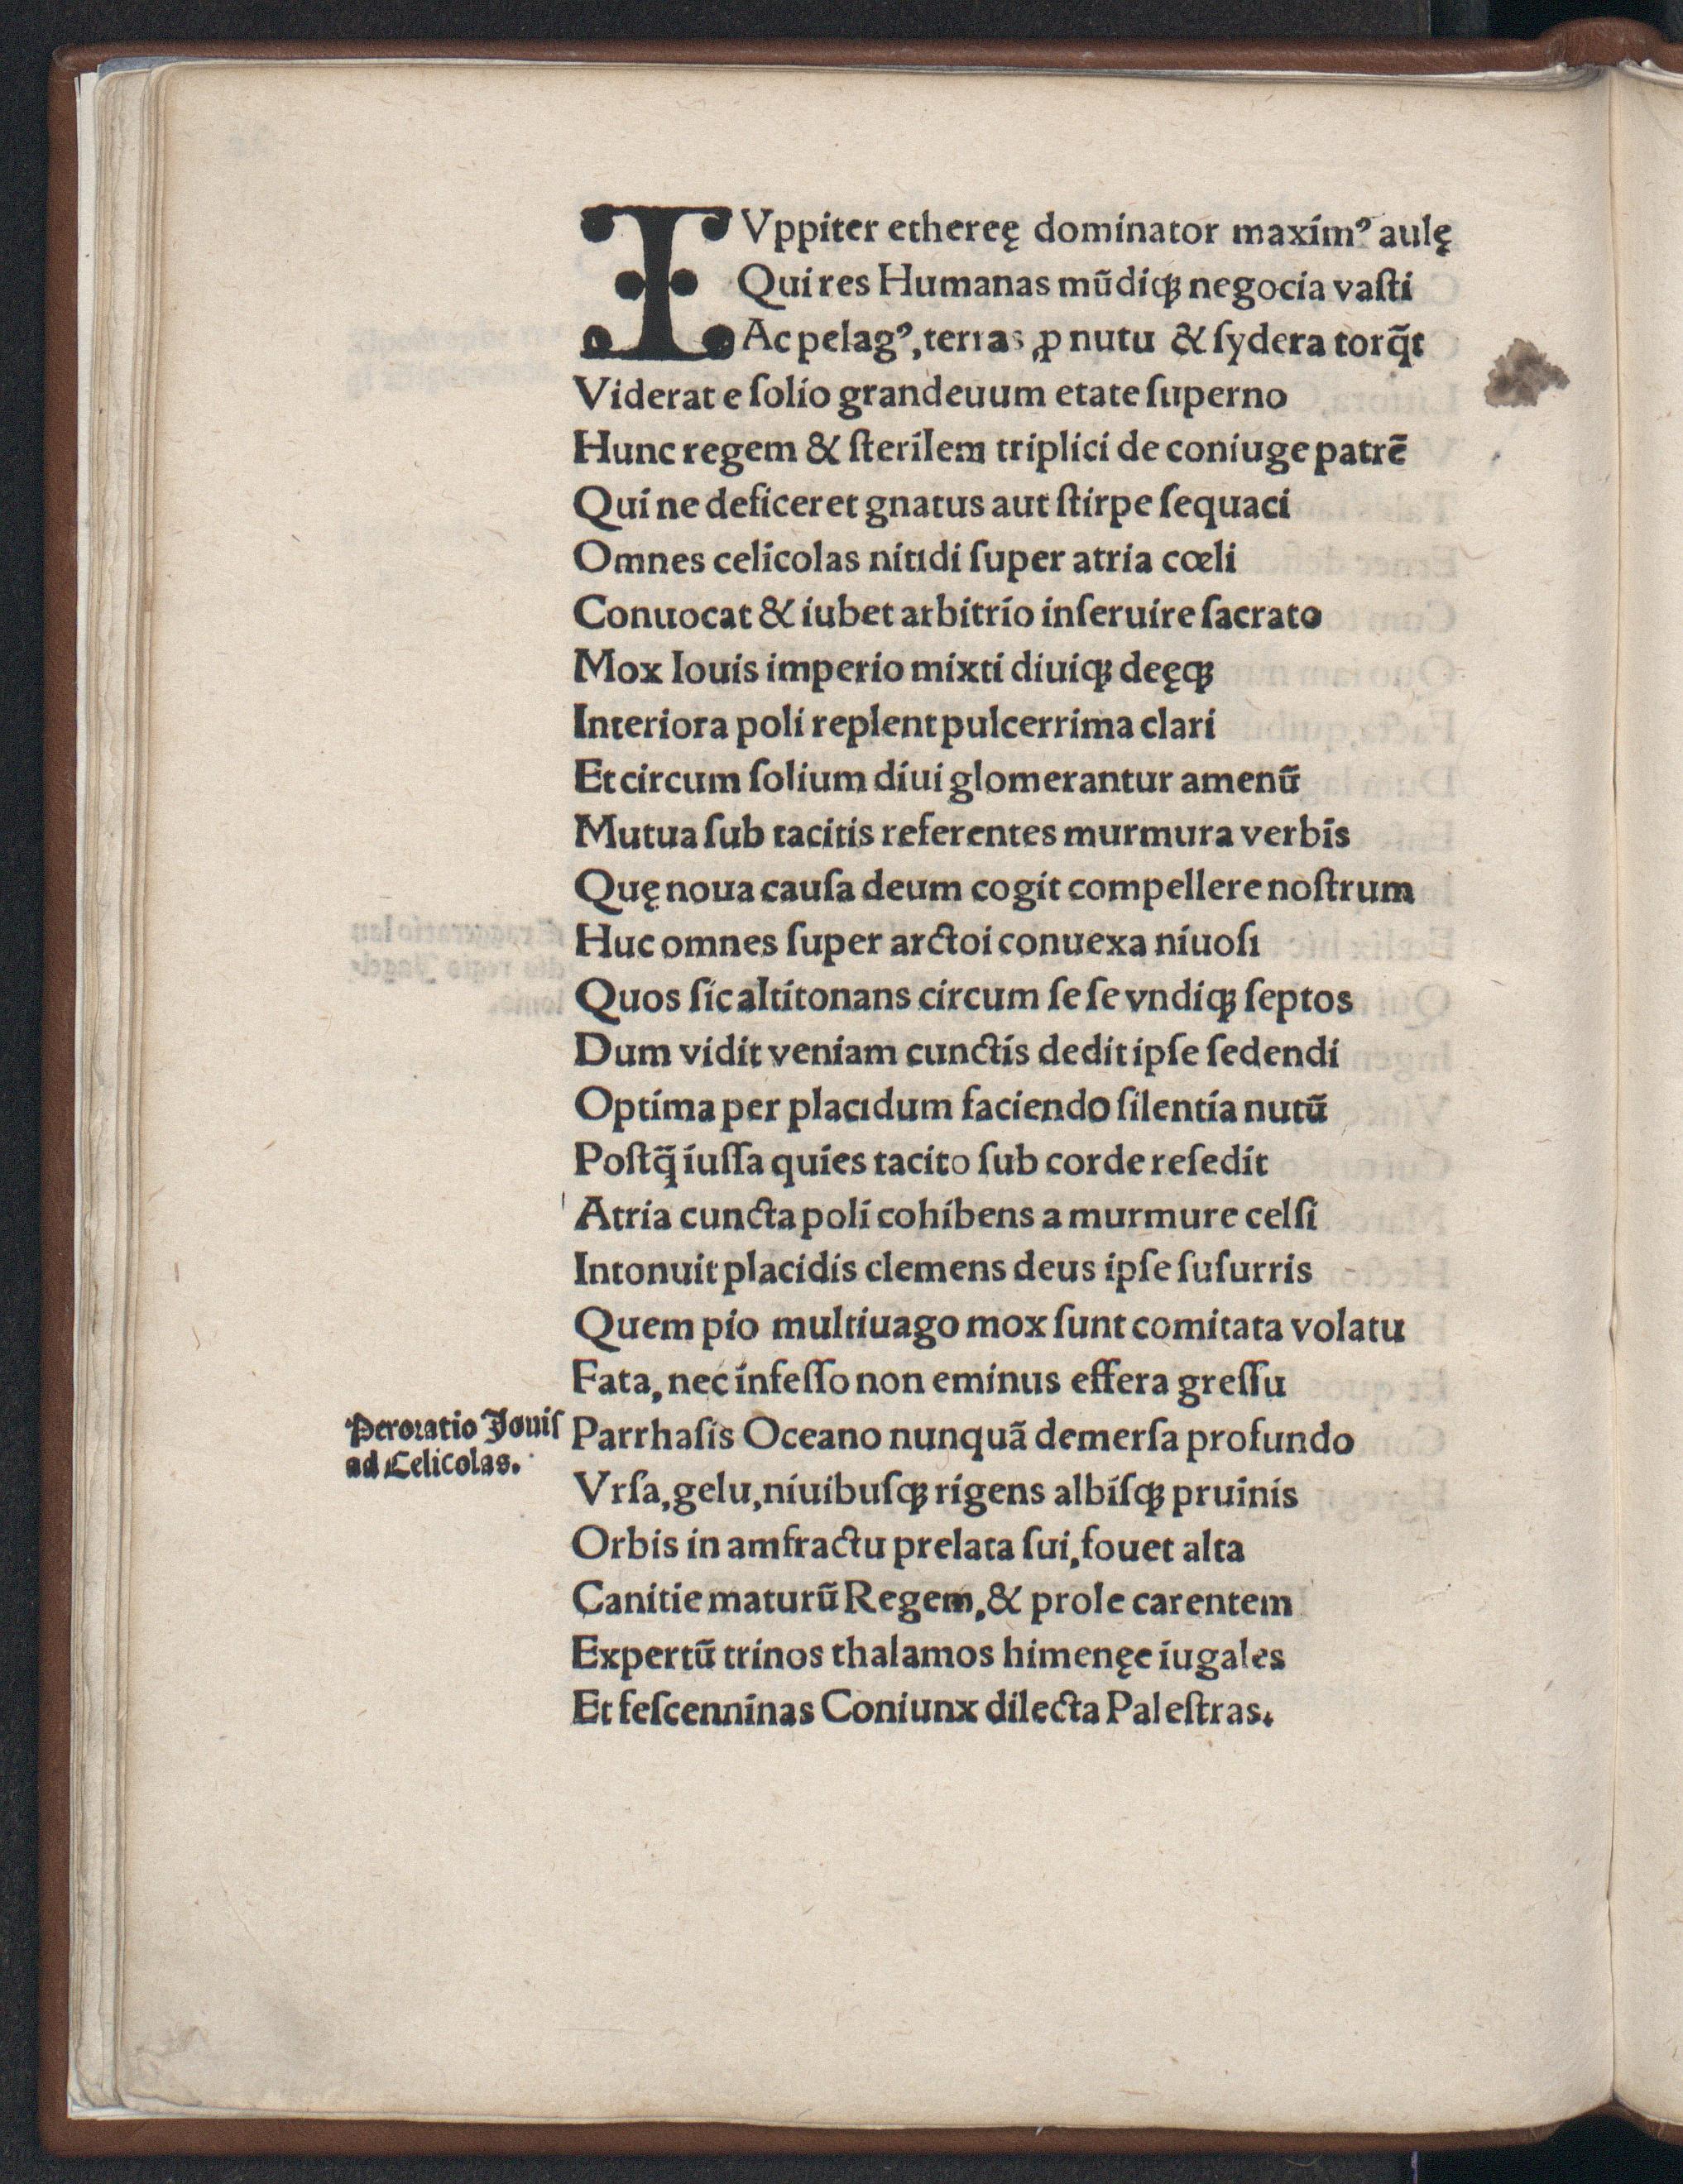 IVppiter ethereę dominator maximꝰ aulę
Qui res Humanas mũdiqꝫ negocia vaſti
Ac pelagꝰ, terras ꝓ nutu & ſydera torq̃t
Viderat e ſolio grandeuum etate ſuperno
Hunc regem & ſterilem triplici de coniuge patrẽ
Qui ne deficeret gnatus aut ſtirpe ſequaci
Omnes celicolas nitıdi ſuper atria cœli
Conuocat & iubet arbitrio inſeruire ſacrato
Mox Iouis imperio mixti diuiqꝫ deęqꝫ
Interiora poli replent pulcerrima clari
Et circum ſolium diui glomerantur amenũ
Mutua ſub tacitis referentes murmura verbis
Quę noua cauſa deum cogit compellere noſtrum
Huc omnes ſuper arctoi conuexa niuoſı
Quos ſic altitonans circum ſe ſe vndiqꝫ ſeptos
Dum vidit veniam cunctis dedit ipſe ſedendi
Optima per placıdum faciendo ſilentia nutũ
Poſtq̃ iuſſa quies tacito ſub corde reſedit
Atria cuncta poli cohibens a murmure celſi
Intonuit placidis clemens deus ipſe ſuſurris
Quem pio multiuago mox ſunt comitata volatu
Fata, nec infeſſo non eminus effera greſſu
Peroratio Jouiſ
ad Celicolas.
Parrhaſis Oceano nunquã demerſa profundo
Vrſa, gelu, niuibuſqꝫ rigens albiſqꝫ pruinis
Orbis in amfractu prelata ſui, fouet alta
Canitie maturũ Regem, & prole carentem
Expertũ trinos thalamos himenęe iugales
Et feſcenninas Coniunx dilecta Paleſtras.